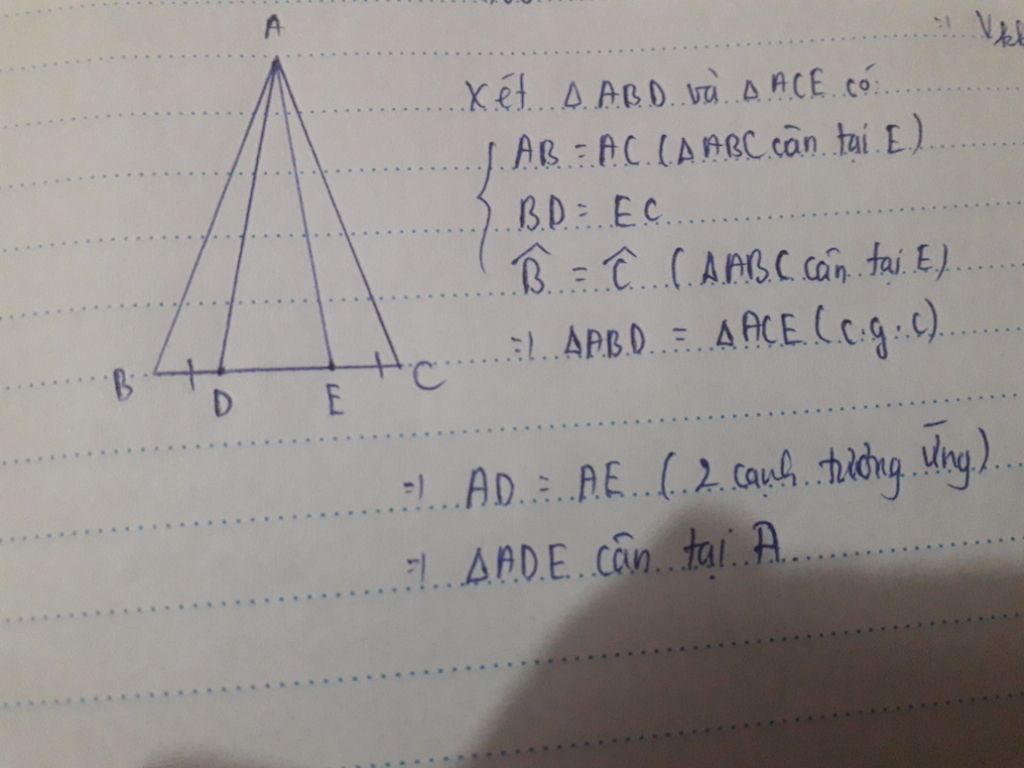 A
Xét Δ ABD và Δ ACE có
AB = AC (ΔABC cân tại E)
BD = EC
B̂ = Ĉ (ΔABC cân tại E)
=> ΔABD = ΔACE (c.g.c)
B D E C
=> AD = AE (2 cạnh tương ứng)
=> ΔADE cân tại A